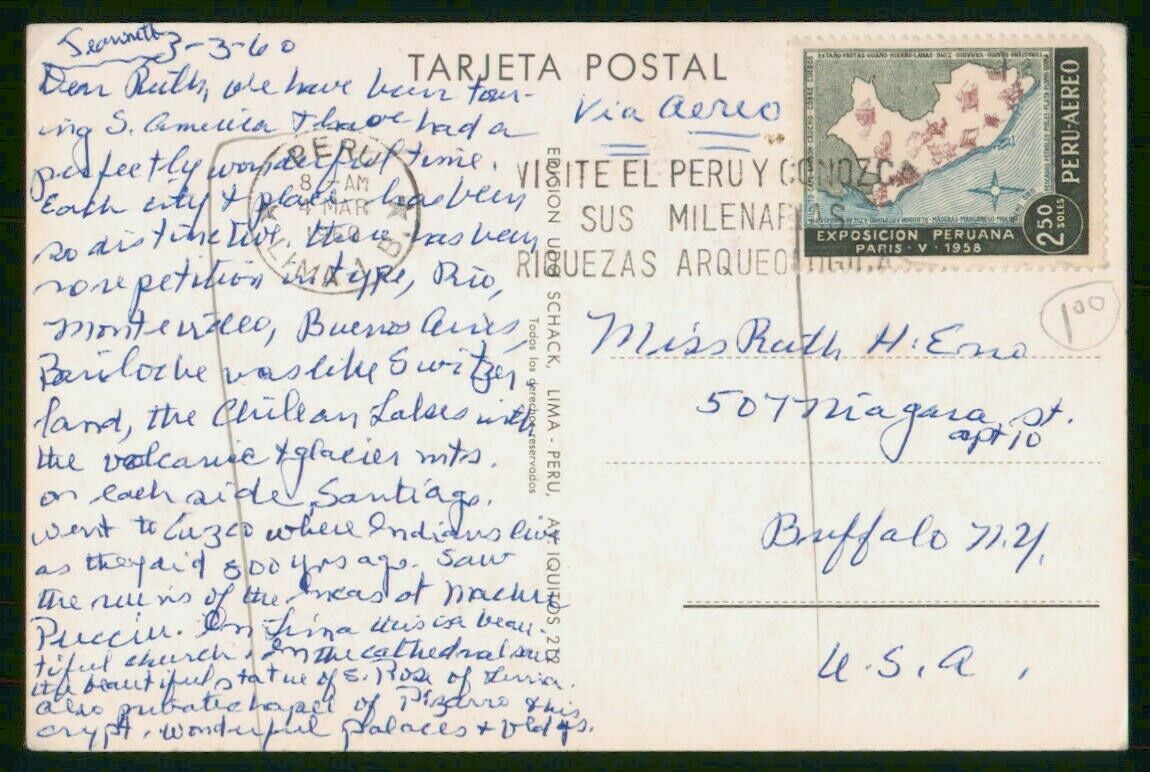 Jeannette
3-3-60
Dear Ruth, we have been tour-
ing S. America & have had a
perfectly wonderful time.
Each city & place has been
so distinctive. there has been
no repetition in type, Rio,
Montevideo, Buenos Aires,
Bariloche was like Switzer
land, the Chilean Lakes with
the volcanic & glacier mts.
on each side, Santiago.
Went to Cuzco where Indians live
as they did 500 yrs ago. Saw
the ruins of the Incas at Machu
Pucciu. In Lima this is a beau-
tiful church. In the cathedral saw
the beautiful statue of S. Rose of Lima.
also private chapel of Pizarro & his
crypt. wonderful palaces & bldgs.
TARJETA POSTAL
Via Aereo
PERU
8 - AM
4 MAR
1960
LIMA 1 B.
VISITE EL PERU Y CONOZCA
SUS MILENARIAS
RIQUEZAS ARQUEOLOGICAS
PERU-AEREO
2.50 SOLES
EXPOSICION PERUANA
PARIS · V · 1958
1 00
EDICION UDO SCHACK, LIMA - PERU, AV. IQUITOS 212
Todos los derechos reservados
Miss Ruth H. Eno
507 Niagara St.
apt 10
Buffalo N.Y.
U.S.A.